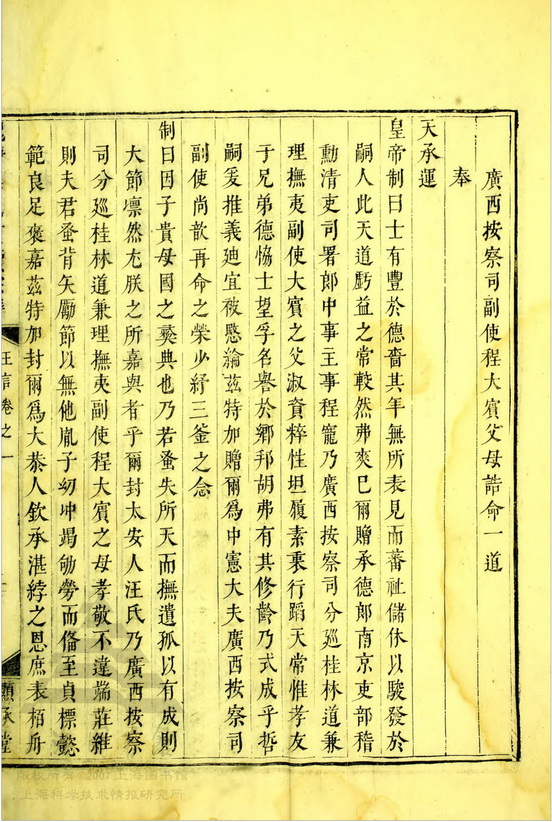 廣西按察司副使程大賓父母誥命一道
奉
天承運
皇帝制曰士有豐於德嗇其年無所表見而蕃祉儲休以駿發於
嗣人此天道虧益之常較然弗爽巳爾贈承德郎南京吏部稽
勳清吏司署郎中事主事程寵乃廣西按察司分廵桂林道兼
理撫夷副使大賓之父淑資粹性坦履素秉行蹈天常惟孝友
于兄弟德恊士望孚名譽於鄉邦胡弗有其修齡乃式成乎哲
嗣爰推義廸宜被愍綸茲特加贈爾爲中憲大夫廣西按察司
副使尚歆再命之榮少紓三釜之念
制曰因子貴母國之彛典也乃若蚤失所天而撫遺孤以有成則
大節凛然尤朕之所嘉與者乎爾封太安人汪氏乃廣西按察
司分廵桂林道兼理撫夷副使程大賓之母孝敬不違端莊維
則夫君蚤背矢勵節以無他胤子幼冲竭劬勞而俻至貞標懿
範良足褒嘉茲特加封爾爲大恭人欽承湛綍之恩庶表栢舟
王言卷之一
顯承堂
版权所有 2007上海图书馆
上海科学技术情报研究所